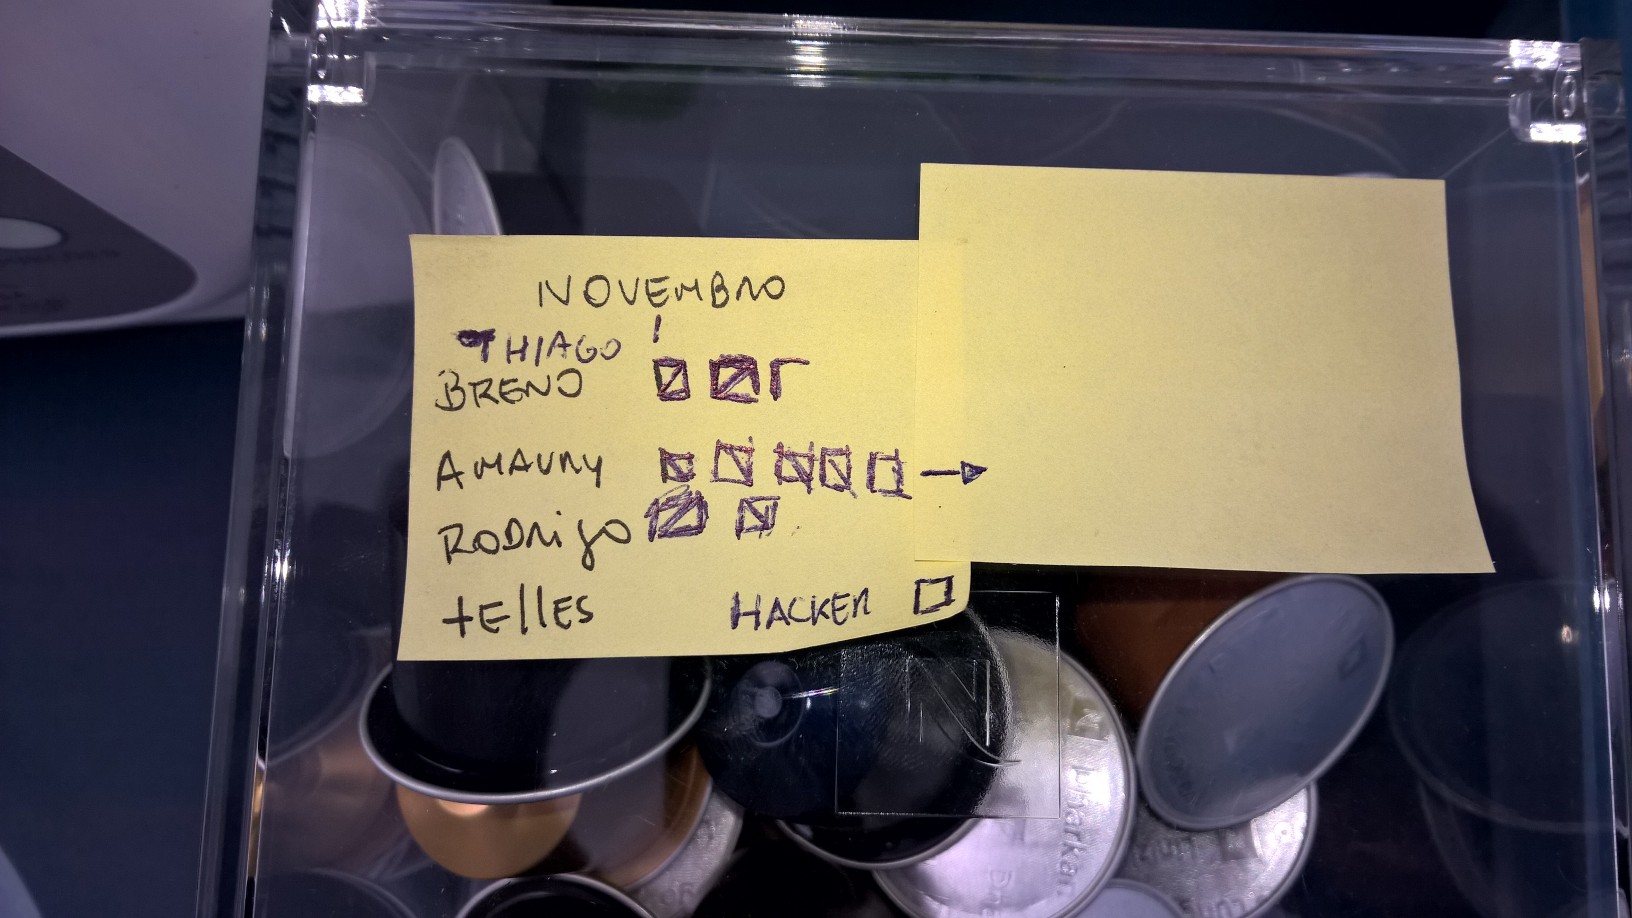 NOVEMBRO
THIAGO
BRENO
AMAURY
RODRIGO
tElles HACKER
N